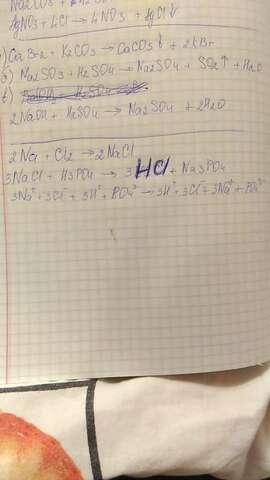 Na2CO3 +
AgNO3 + LiCl → LiNO3 + AgCl↓
) CaBr2 + K2CO3 → CaCO3↓ + 2KBr
б) Na2SO3 + H2SO4 → Na2SO4 + SO2↑ + H2O
в)
2NaOH + H2SO4 → Na2SO4 + 2H2O
2Na + Cl2 → 2NaCl
3NaCl + H3PO4 → 3HCl + Na3PO4
3Na⁺ + 3Cl⁻ + 3H⁺ + PO4³⁻ → 3H⁺ + 3Cl⁻ + 3Na⁺ + PO4³⁻